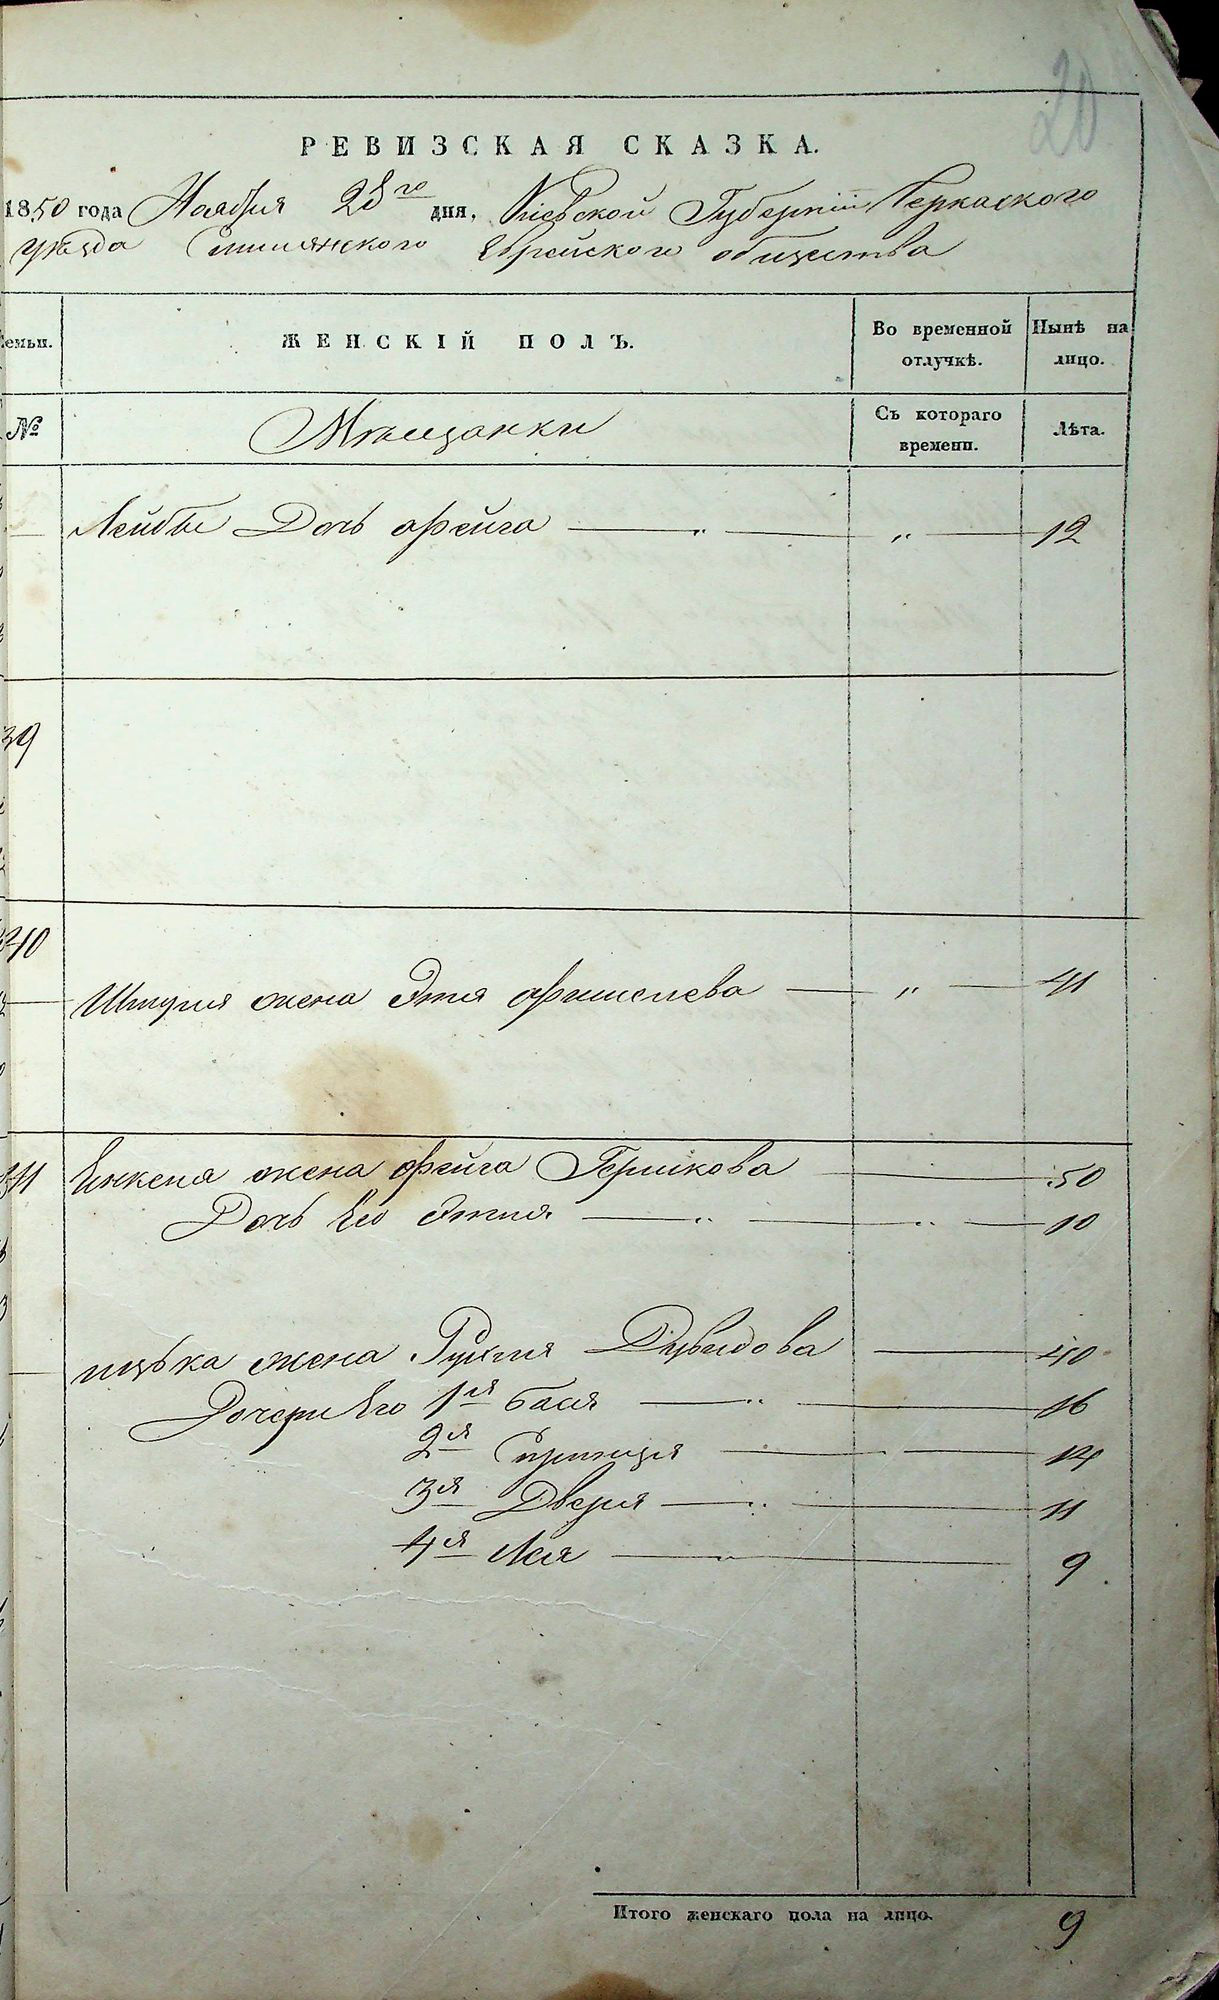 20
РЕВИЗСКАЯ СКАЗКА.
1850 года Ноября 28го дня, Киевской Губернии Черкаского
уезда Смилянского Еврейского общества
Семьи.
ЖЕНСКІЙ ПОЛЪ.
Во временной отлучкѣ.
Нынѣ на лицо.
№
Мещанки
Съ котораго времени.
Лѣта.
Лейбы Дочь Фейга — " — " — 12
39
240
Шмуля жена Этя Фишелева — " — 41
241 Янкеля жена Фейга Гершкова — 50
Дочь Его Этля — " — " — 10
ицька жена Рухля Дувидова — 40
Дочери Его 1я Бася — " — 16
2я Сприндзя — 14
3я Двейря — " — 11
4я Лея — " — 9
Итого женскаго пола на лицо. 9